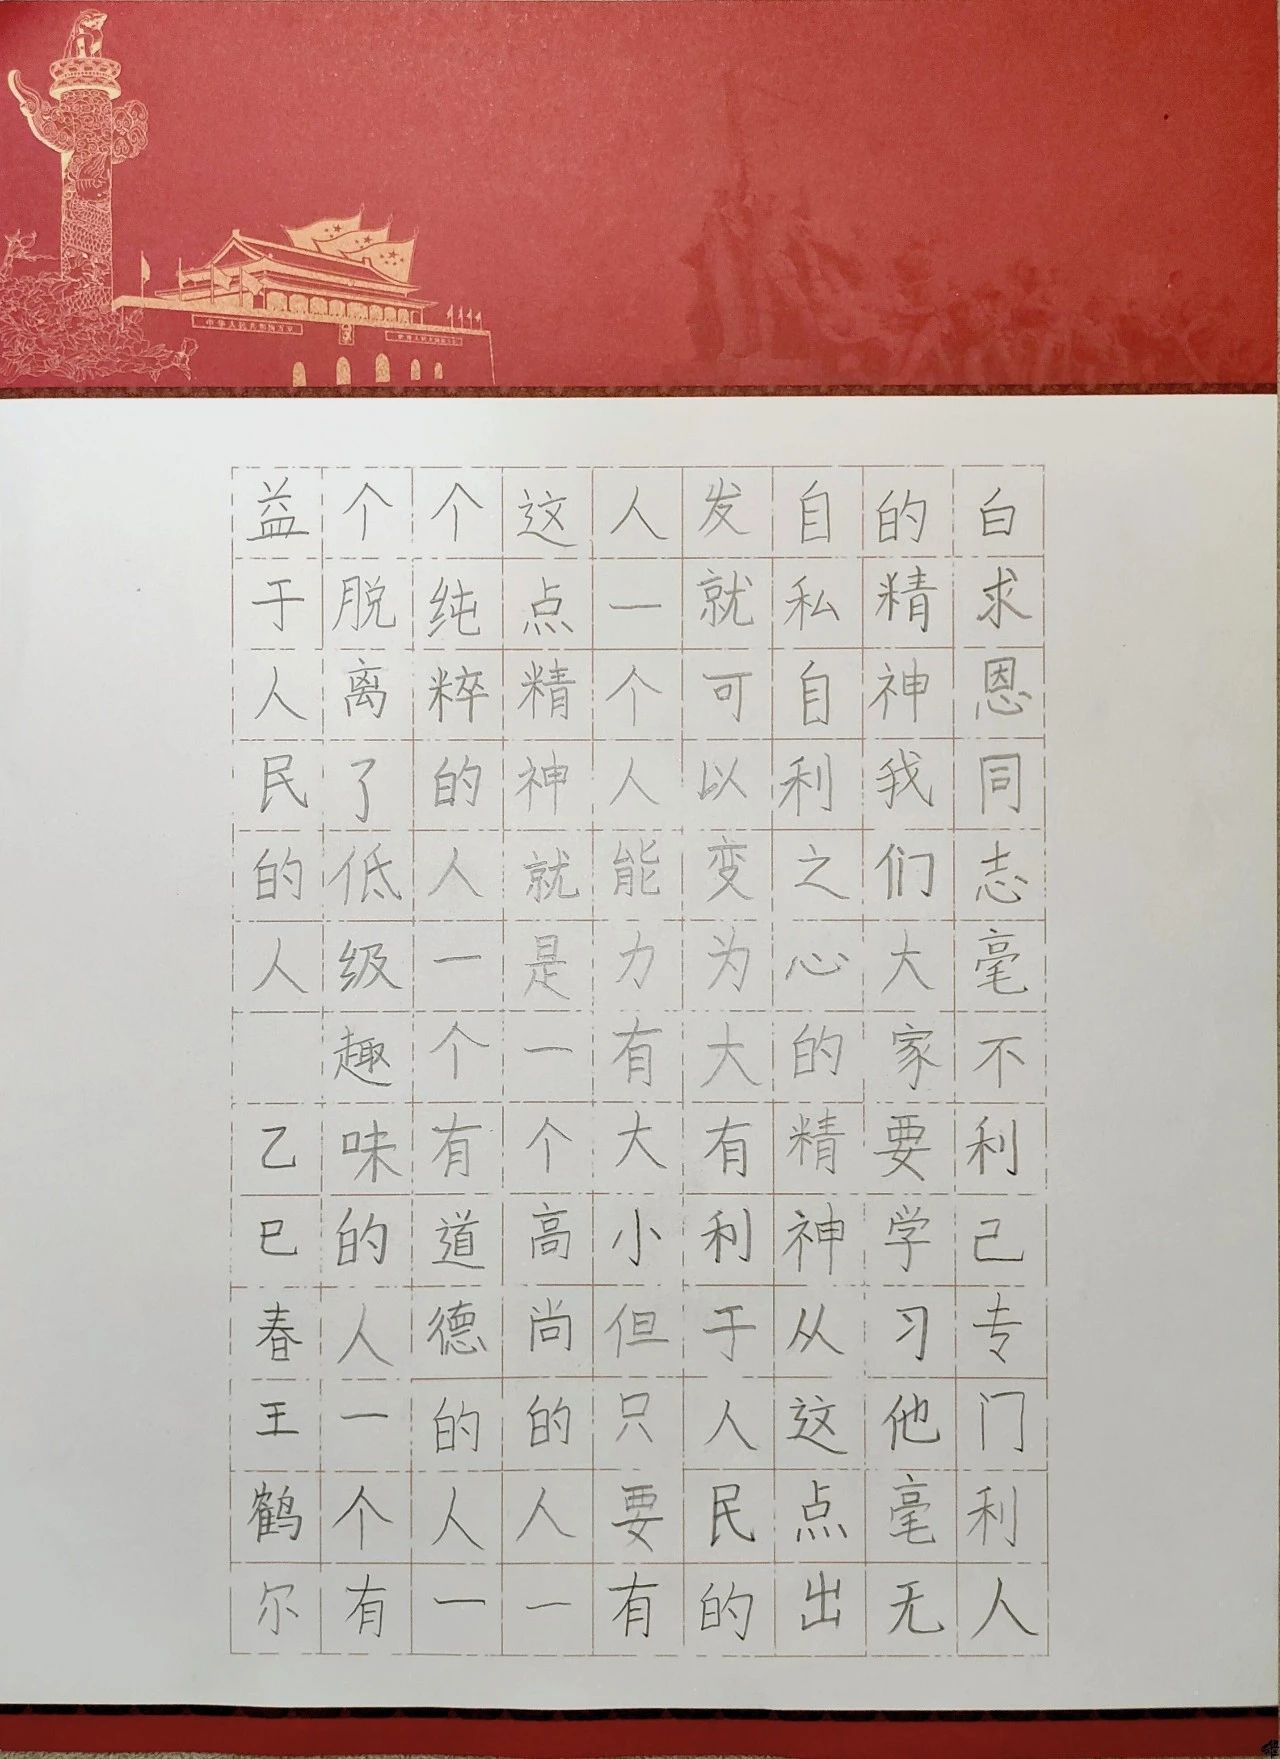 白求恩同志毫不利己专门利人
的精神我们大家要学习他毫无
自私自利之心的精神从这点出
发就可以变为大有利于人民的
人一个人能力有大小但只要有
这点精神就是一个高尚的人一
个纯粹的人一个有道德的人一
个脱离了低级趣味的人一个有
益于人民的人 乙巳春王鹤尔